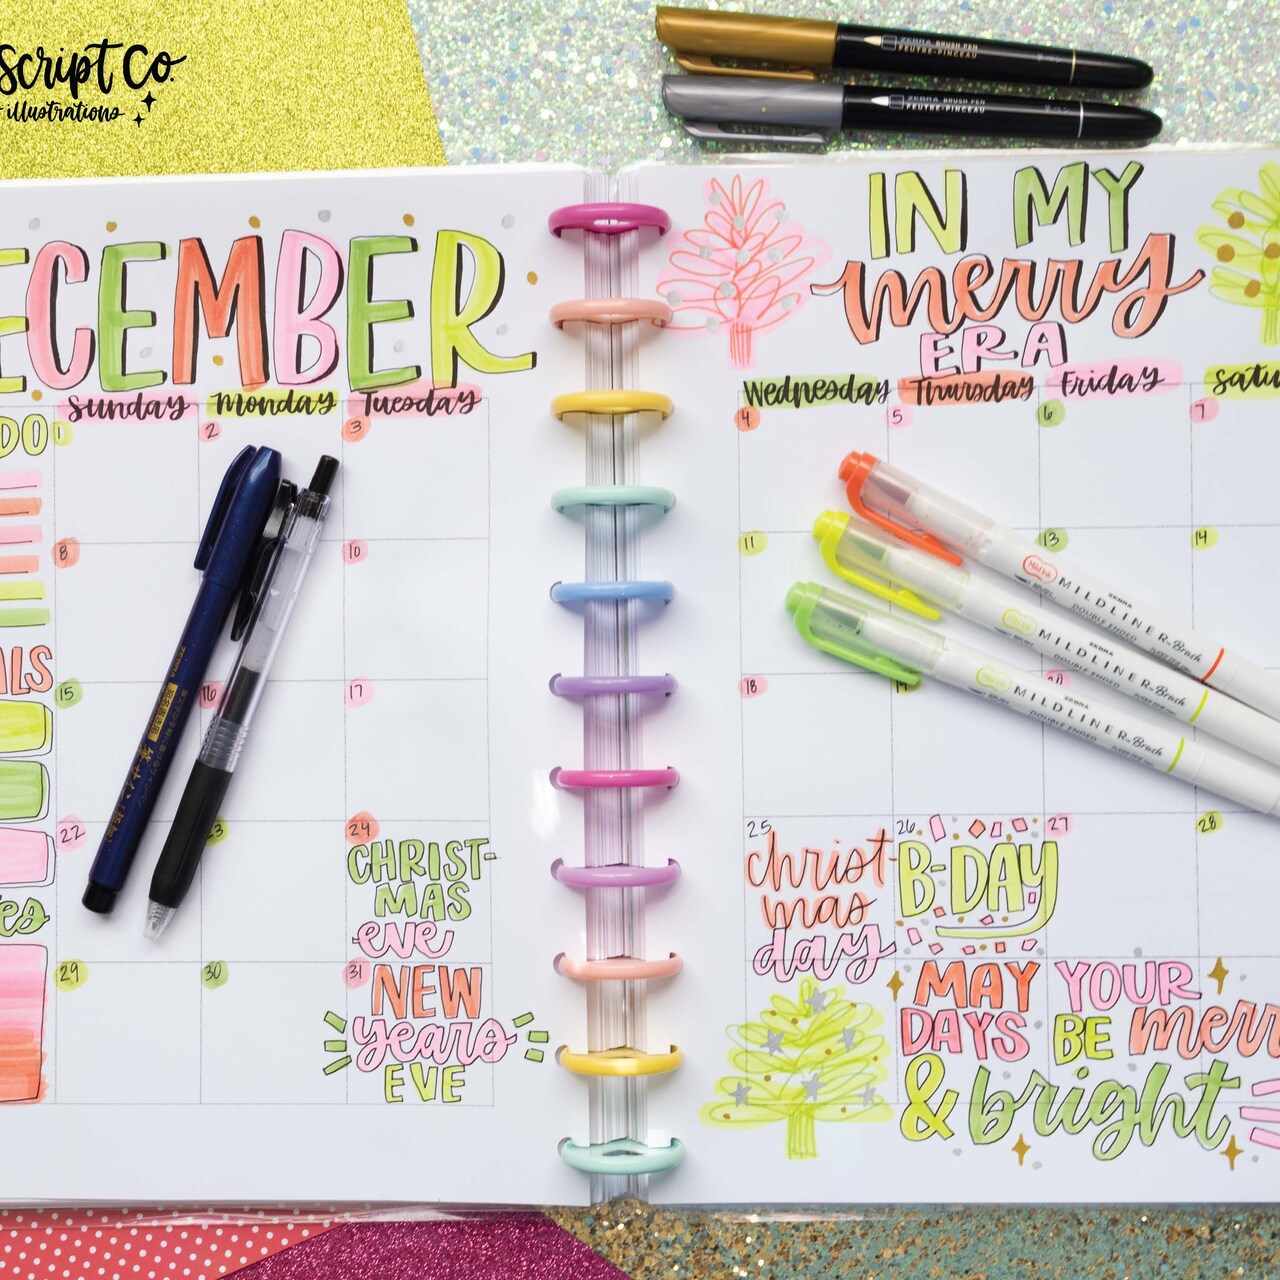 Script Co.
illustrations
ZEBRA BRUSH PEN
FEUTRE-PINCEAU
ZEBRA BRUSH PEN
FEUTRE-PINCEAU
ECEMBER
IN MY
merry
ERA
Sunday Monday Tuesday
Wednesday Thursday Friday Satu
DO
1 2 3
4 5 6 7
8 10
11 13 14
ALS
15 16 17
18 19 20
Mild Ink ZEBRA MILDLINER Brush
DOUBLE ENDED
Mild Ink ZEBRA MILDLINER Brush
DOUBLE ENDED
Mild Ink ZEBRA MILDLINER Brush
DOUBLE ENDED
ZEBRA
22 23 24
CHRIST-
MAS
eve
es
25 26 27 28
christ-
mas
day
B-DAY
29 30 31
NEW
years
EVE
MAY YOUR
DAYS BE merr
& bright